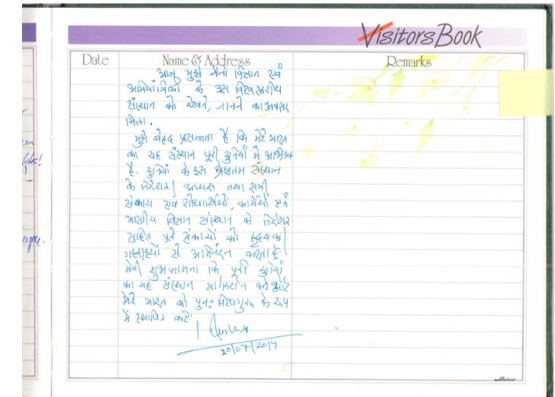 Visitors Book
Date Name & Address Remarks
आज मुझे नैनो विज्ञान एवं
अभियांत्रिकी के इस विश्व स्तरीय
संस्थान को देखने, जानने का अवसर
मिला.
मुझे बेहद प्रसन्नता है कि मेरे भारत
का यह संस्थान पूरी दुनियाँ में
है. दुनियाँ के इस संस्थान
के अध्यक्ष तथा सभी
संकाय एवं शोधार्थियों, कर्मियों एवं
भारतीय विज्ञान संस्थान के
सहित पूरे संकायों को हृदय की
गहराइयों से अभिनंदन करता हूँ.
मेरी शुभकामना कि पूरी दुनियाँ
का यह संस्थान मार्गदर्शन करे और
मेरे भारत को पुनः विश्वगुरु के रूप
में स्थापित करे.
20/07/2019